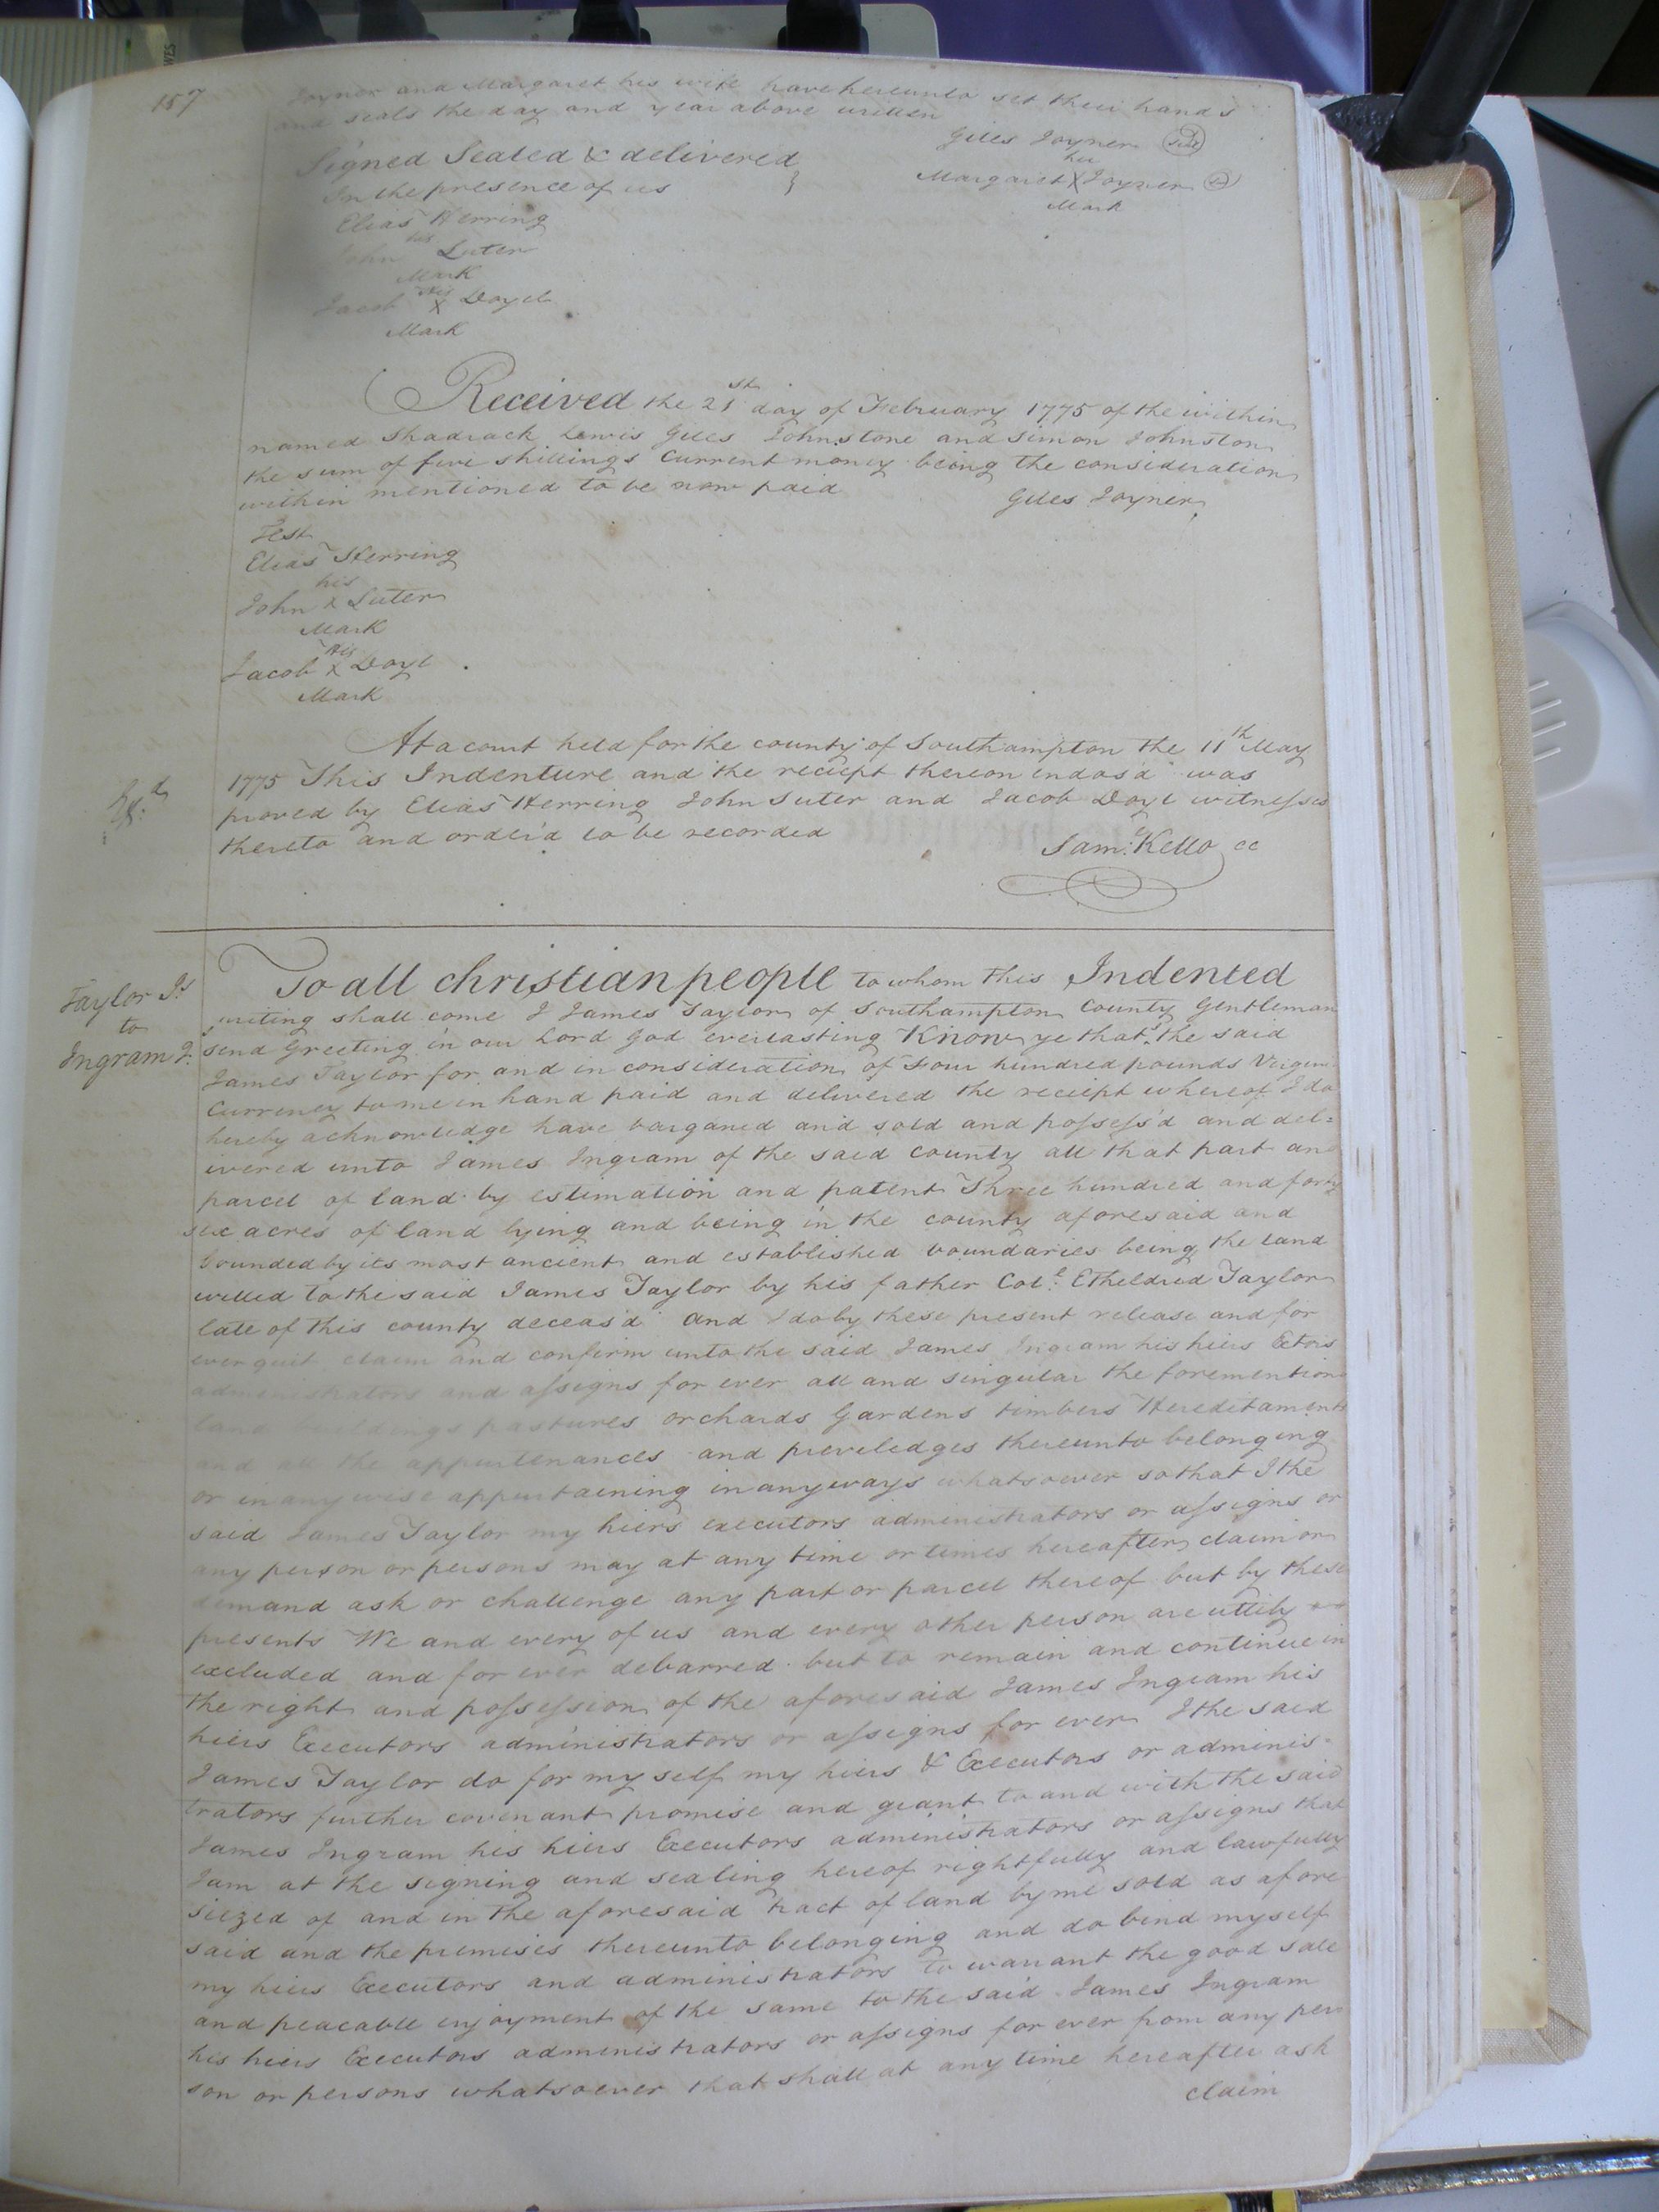 157
Joyner and Margaret his wife have hereunto set their hands
and seals the day and year above written
Giles Joyner (Seal)
Signed Sealed & delivered
her
In the presence of us
Margaret X Joyner
Mark
Elias Herring
his
John Luter
Mark
His
Jacob X Doyel
Mark
Received the 21st day of February 1775 of the within
named Shadrack Lewis Giles Johnstone and Simon Johnston
the sum of five shillings Current money being the consideration
within mentioned to be now paid
Giles Joyner
Test
Elias Herring
his
John X Luter
Mark
His
Jacob X Doyl
Mark
At a court held for the county of Southampton the 11th May
1775 This Indenture and the reciept thereon endos'd was
proved by Elias Herring John Luter and Jacob Doyl witnesses
thereto and order'd to be recorded
Saml. Kello CC
Taylor Jr
to
Ingram J.
To all christian people to whom this Indented
writing shall come I James Taylor of Southampton County Gentleman
send Greeting in our Lord God everlasting Know ye that the said
James Taylor for and in consideration of Four hundred pounds
Currency to me in hand paid and delivered the reciept whereof I do
hereby acknowledge have barganed and sold and possess'd and del=
ivered unto James Ingram of the said county all that part and
parcel of land by estimation and patent Three hundred and forty
six acres of land lying and being in the county aforesaid and
bounded by its most ancient and established boundaries being the land
willed to the said James Taylor by his father Colo. Etheldred Taylor
late of this county deceas'd and I do by these present release and for
ever quit claim and confirm unto the said James Ingram his hiers Extrs
administrators and assigns for ever all and singular the forementiond
land buildings pastures orchards Gardens timbers Hereditaments
and all the appurtenances and previledges thereunto belonging
or in any wise appurtaining in any ways whatsoever so that I the
said James Taylor my hiers executors administrators or assigns or
any person or persons may at any time or times hereafter claim or
demand ask or challenge any part or parcel thereof but by these
presents We and every of us and every other person are utterly
excluded and for ever debarred but to remain and continue in
the right and possession of the aforesaid James Ingram his
hiers Executors administrators or assigns for ever I the said
James Taylor do for my self my hiers & Executors or adminis=
trators further covenant promise and grant to and with the said
James Ingram his hiers Executors administrators or assigns that
I am at the signing and sealing hereof rightfully and lawfully
siezed of and in the aforesaid tract of land by me sold as afore
said and the premises thereunto belonging and do bind myself
my hiers Executors and administrators to warrant the good sale
and peacable enjoyment of the same to the said James Ingram
his hiers Executors administrators or assigns for ever from any per
son or persons whatsoever that shall at any time hereafter ask
claim